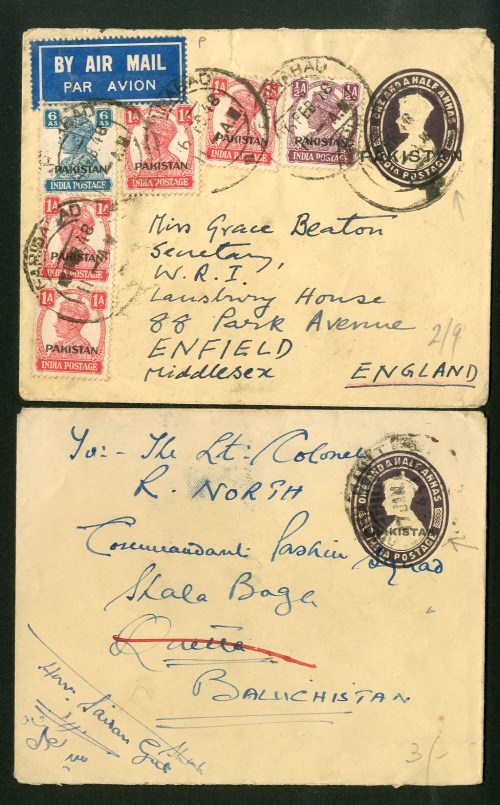 P
BY AIR MAIL
PAR AVION
6 AS
PAKISTAN
INDIA POSTAGE
1A 1A
PAKISTAN
INDIA POSTAGE
1A
PAKISTAN
INDIA POSTAGE
½A
PAKISTAN
INDIA POSTAGE
ONE AND A HALF ANNAS
PAKISTAN
INDIA POSTAGE
1A 1A
PAKISTAN
INDIA POSTAGE
1A 1A
PAKISTAN
INDIA POSTAGE
Miss Grace Beaton
Secretary,
W.R.I,
Lansbury House
88 Park Avenue
ENFIELD
Middlesex ENGLAND
2/9
To:- The Lt: Colonel
R. NORTH
Commandant Pashin
Shala Bagh
Quetta
BALUCHISTAN
ONE AND A HALF ANNAS
PAKISTA
INDIA POSTAGE
Hon.
3/-